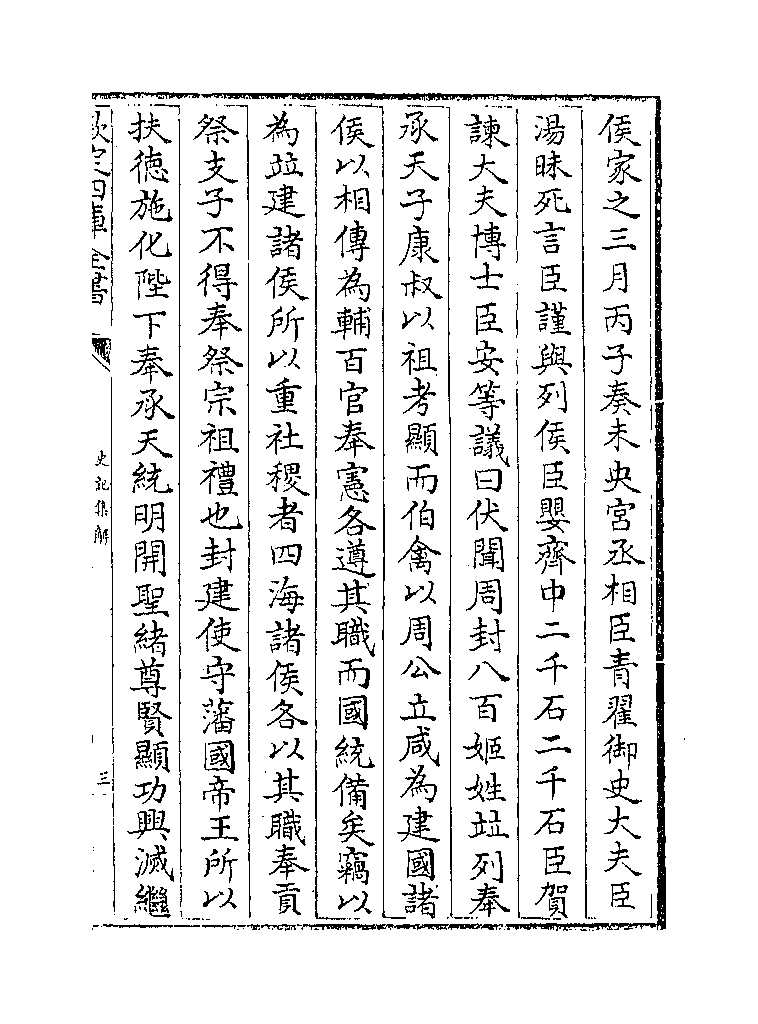 侯家之三月丙子奏未央宮丞相臣青翟御史大夫臣
湯昧死言臣謹與列侯臣嬰齊中二千石二千石臣賀
諫大夫博士臣安等議曰伏聞周封八百姬姓竝列奉
承天子康叔以祖考顯而伯禽以周公立咸為建國諸
侯以相傳為輔百官奉憲各遵其職而國統備矣竊以
為竝建諸侯所以重社稷者四海諸侯各以其職奉貢
祭支子不得奉祭宗祖禮也封建使守藩國帝王所以
扶德施化陛下奉承天統明開聖緒尊賢顯功興滅繼
欽定四庫全書
史記集解
三